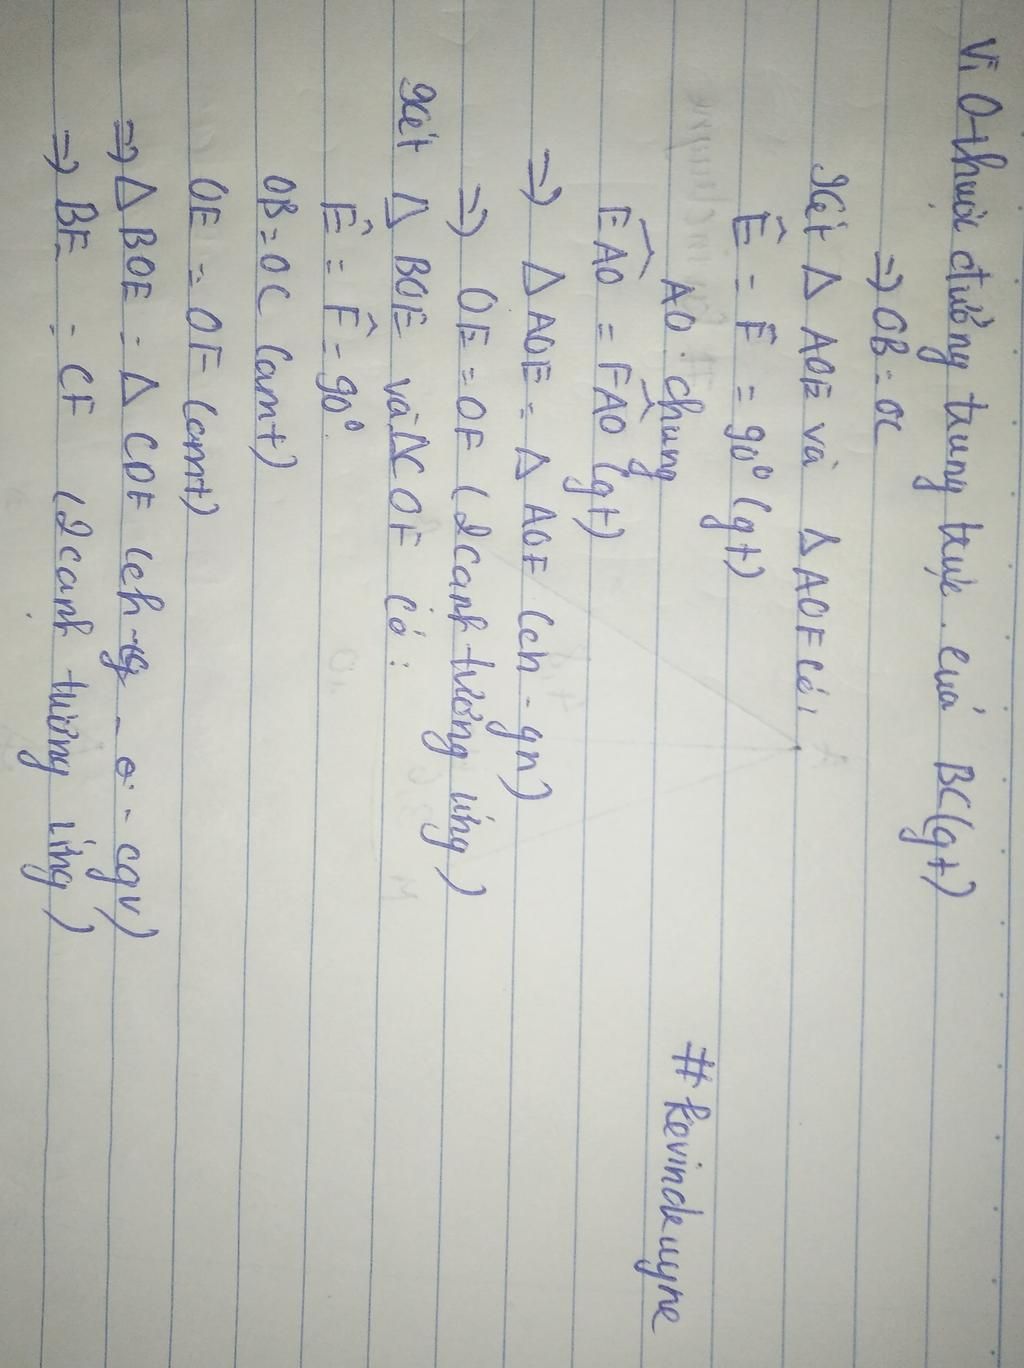 Vì O thuộc đường trung trực của BC (gt)
=> OB = OC
Xét Δ AOE và Δ AOF có:
Ê = F̂ = 90° (gt)
AO chung
EAO = FAO (gt)
=> Δ AOE = Δ AOF (ch - gn)
=> OE = OF (2 cạnh tương ứng)
Xét Δ BOE và ΔCOF có:
Ê = F̂ = 90°
OB = OC (cmt)
OE = OF (cmt)
=> Δ BOE = Δ COF (ch - cgv)
=> BE = CF (2 cạnh tương ứng)
# kevindewyne